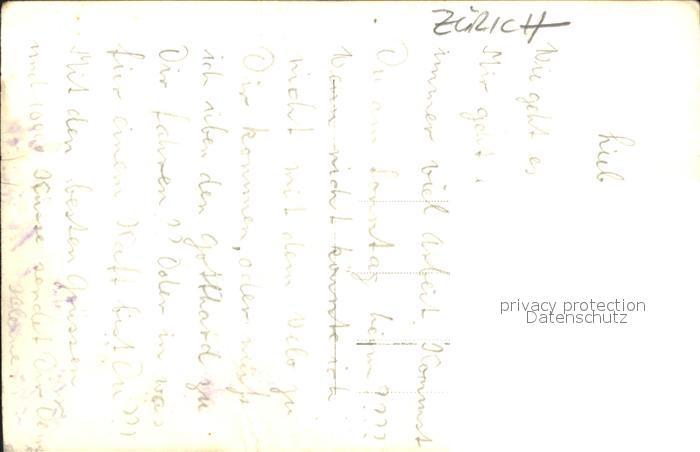 ZÜRICH
Lieb
Wie geht es
Mir geht.
immer viel Arbeit. Kommst
Du am Sonntag heim????
Wann nicht könnte ich
nicht mit dem Velo zu
Dir kommen, oder muss
ich über den Gotthard zu
Dir fahren?? Oder in was
für einem Kaff bist Du???
Mit den besten Grüssen
und 1000 Küsse sendet Dir Dein
privacy protection
Datenschutz